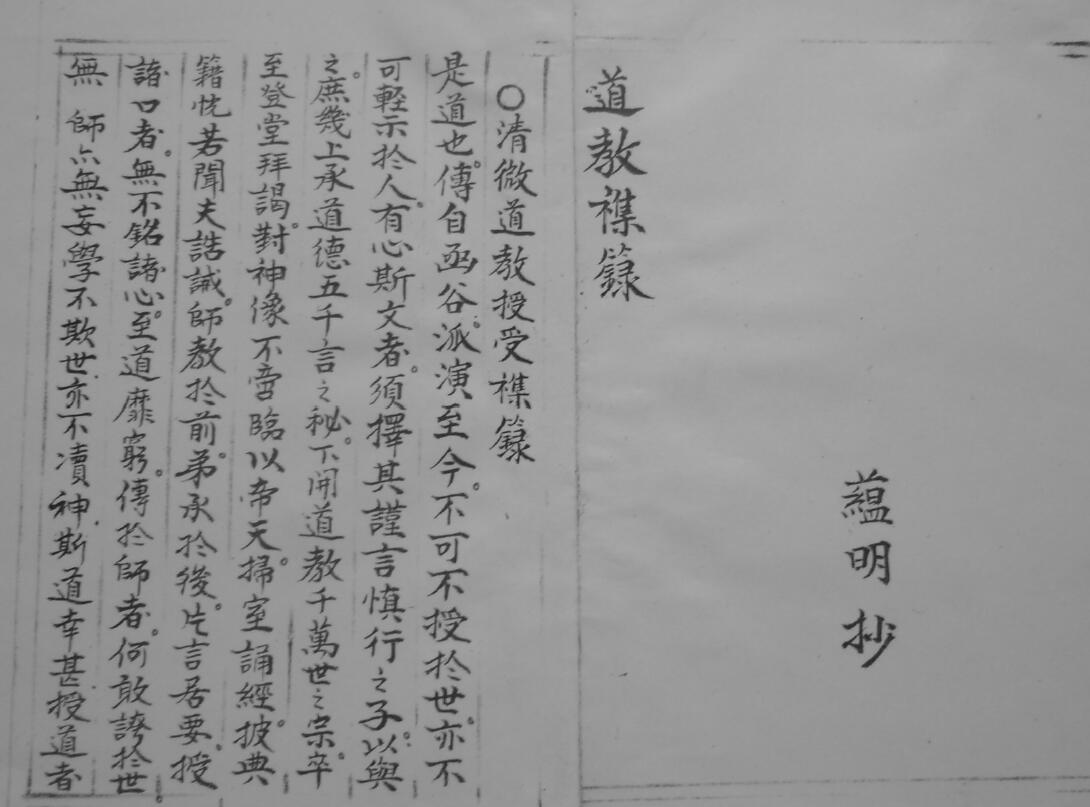 蘊明抄
道教襍籙
○清微道教授受襍籙
是道也。傳自函谷。派演至今。不可不授於世。亦不
可軽示於人。有心斯文者。須擇其謹言慎行之子。以與
之。庶幾上承道德五千言之秘。下開道教千萬世之宗。卒
至登堂拜謁。對神像不啻臨以帝天。掃室誦經。披典
籍恍若聞夫誥誡。師教於前。弟承於後。片言居要。授
諸口者。無不銘諸心。至道靡窮。傳於師者。何敢誇於世。
無 師亦無妄學不欺世亦不凟神斯道幸甚授道者